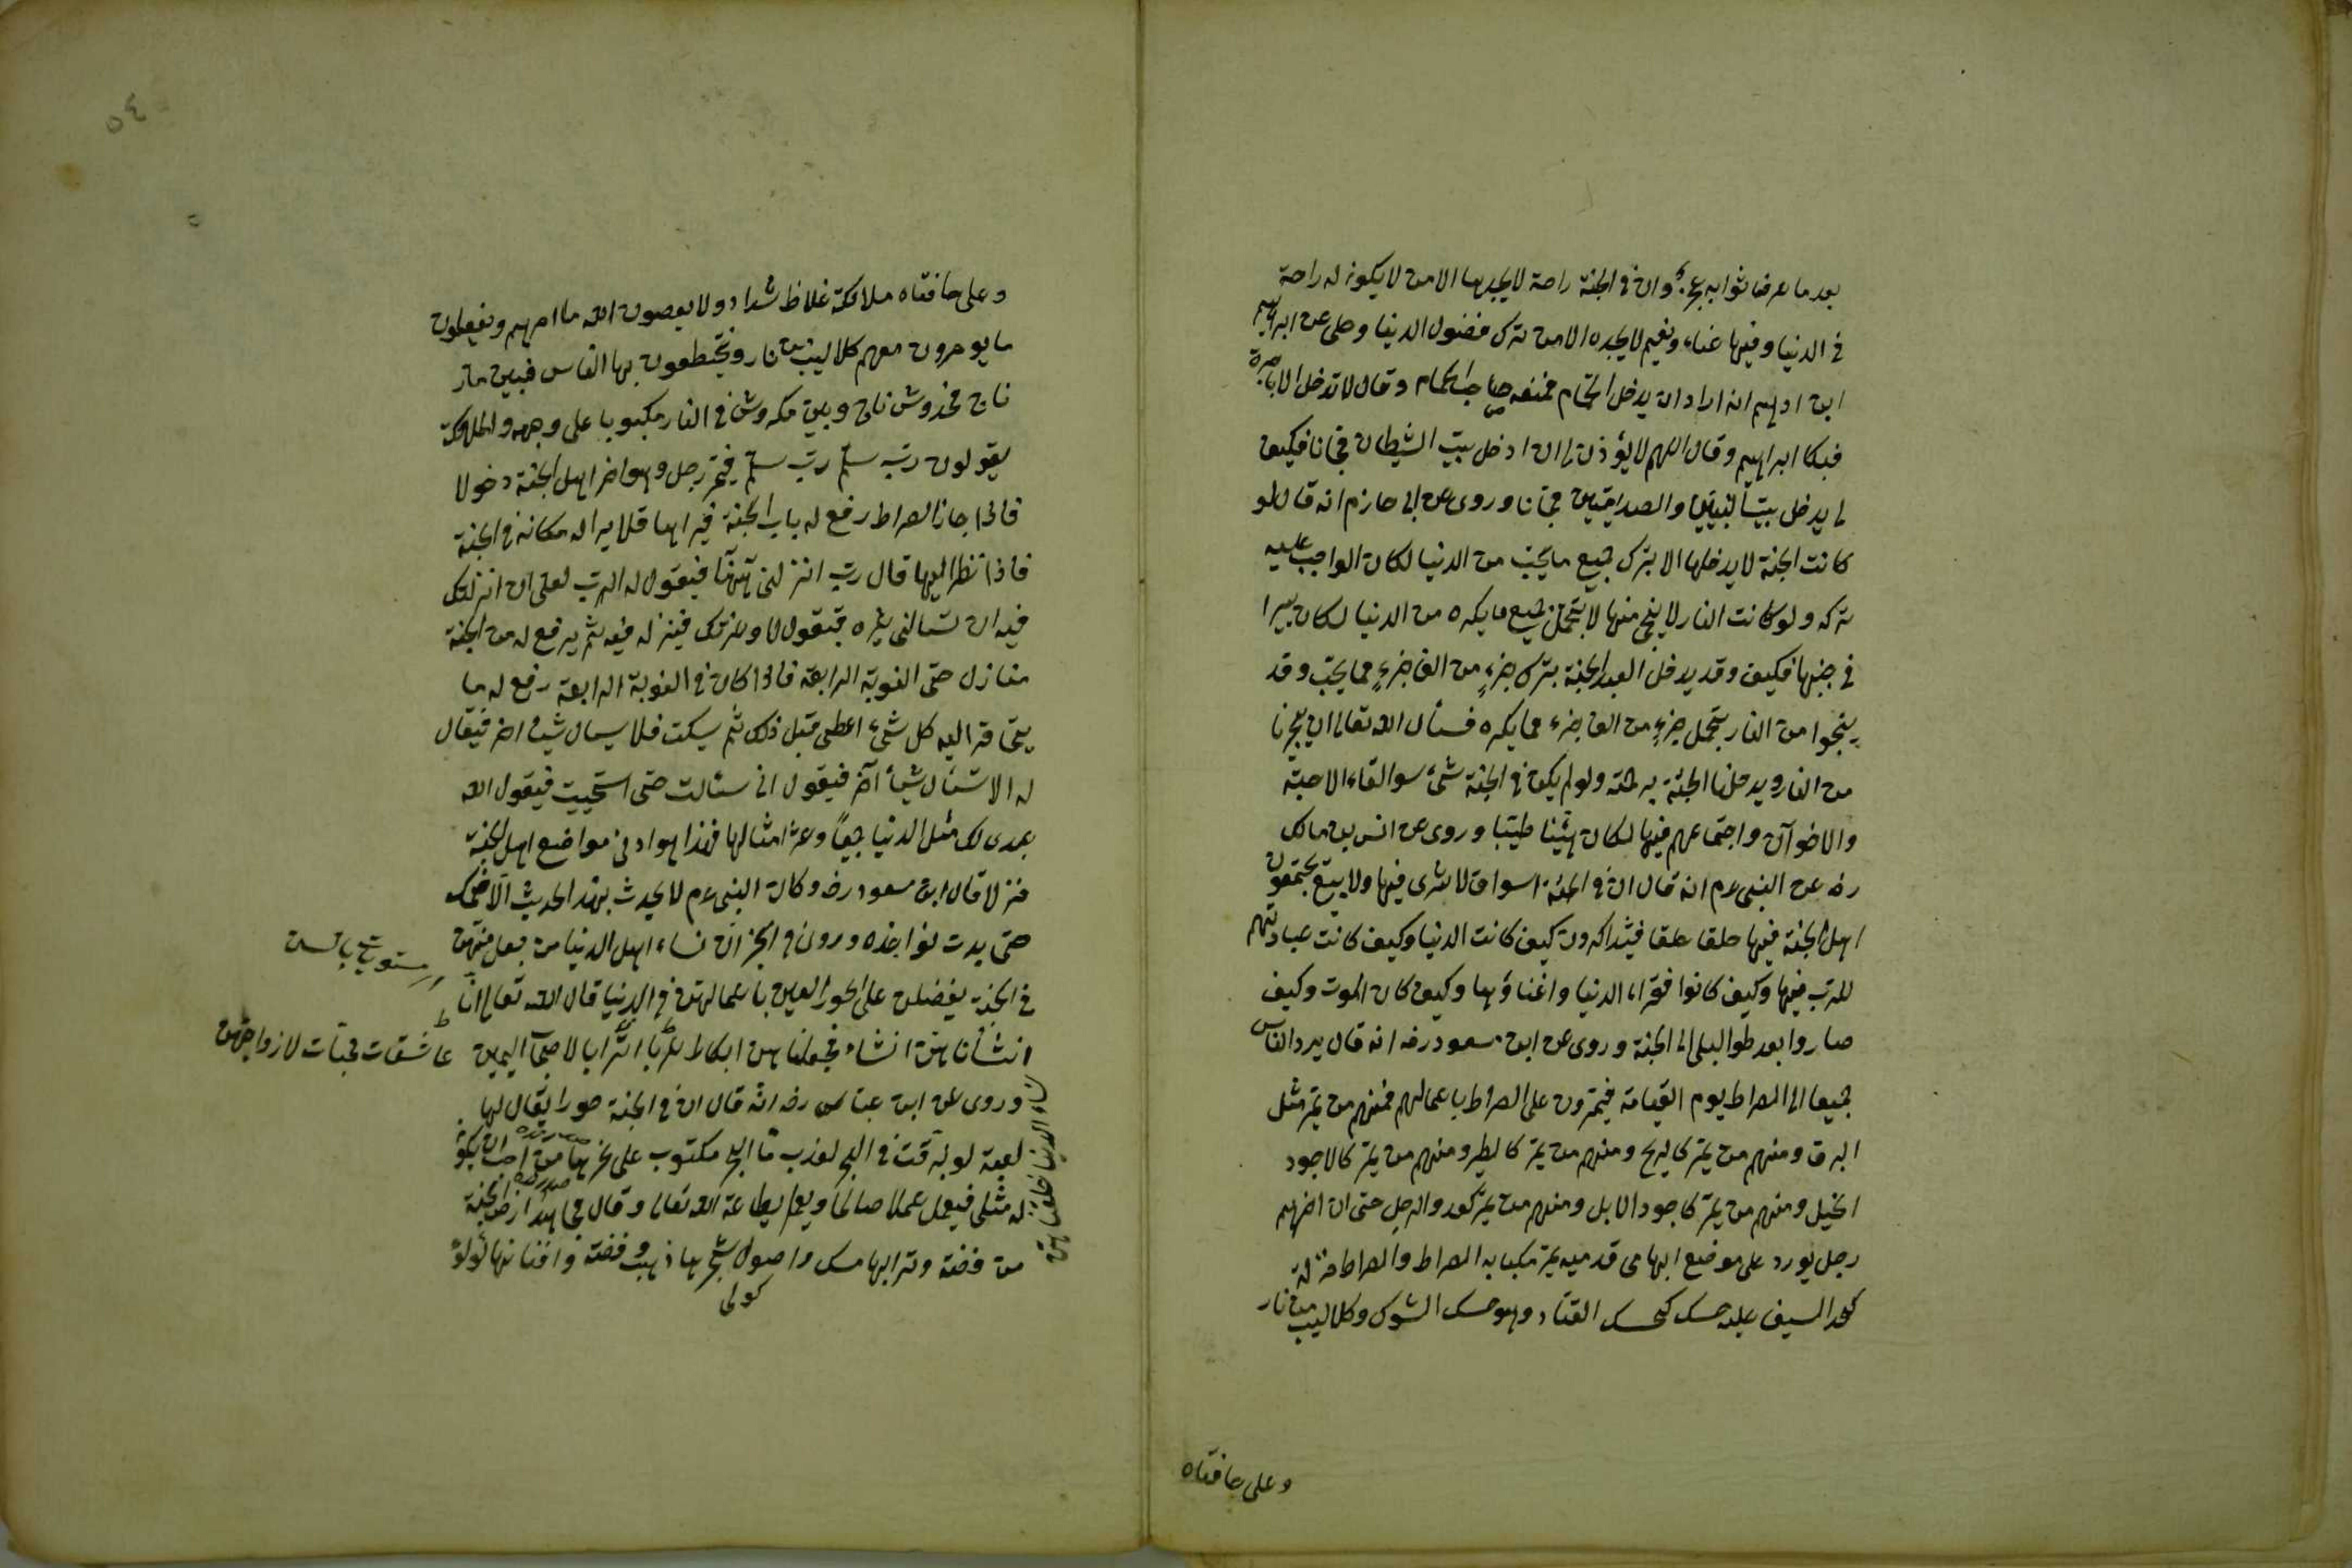 بعد ما عرفنا ثوابه وان في الجنة راحة لا يجدها الا من لا يكون له راحة
في الدنيا وفيها غناء ونعيم لا يجده الا من ترك فضول الدنيا وحكى عن ابراهيم
ابن ادهم انه اراد ان يدخل الحمام فمنعه صاحب الحمام وقال لا تدخل الا باجرة
فبكا ابراهيم وقال اللهم لا يؤذن لى ان ادخل بيت الشيطان مجانا فكيف
لى يدخل بيت النبيين والصديقين مجانا وروى عن ابى حازم انه قال لو
كانت الجنة لا يدخلها الا بترك جميع ما يحب من الدنيا لكان الواجب عليه
تركه ولو كانت النار لا ينجى منها لا بتحمل جميع ما يكره من الدنيا لكان يسيرا
في جنبها فكيف وقد يدخل العبد الجنة بترك جزء من الف جزء مما يحب وقد
ينجوا من النار بتحمل جزء من الف جزء مما يكره فنسأل الله تعالى ان يجرنا
من النار ويدخلنا الجنة برحمته ولو لم يكن في الجنة شئ سوا لقاء الاحبة
والاخوان واجتماعهم فيها لكان هنيئا طيبا وروى عن انس بن مالك
رضه عن النبى عم انه قال ان في الجنة اسواقا لا شرى فيها ولا بيع يجتمعون
اهل الجنة فيها حلقا حلقا فيتذاكرون كيف كانت الدنيا وكيف كانت عبادتهم
للرب فيها وكيف كانوا فقراء الدنيا واغناؤها وكيف كان الموت وكيف
صاروا بعد طول البلى الى الجنة وروى عن ابن مسعود رضه انه قال يرد الناس
جميعا الى الصراط يوم القيامة فيمرون على الصراط باعمالهم فمنهم من يمر مثل
البرق ومنهم من يمر كالريح ومنهم من يمر كالطير ومنهم من يمر كالاجود
الخيل ومنهم من يمر كاجود الابل ومنهم من يمر كعدو الرجل حتى ان اخرهم
رجل يورد على موضع ابهامى قدميه يمر مكبا به الصراط والصراط مزلة
كحد السيف عليه حسك كحسك القتاد وهو حسك الشوك وكلاليب من نار
وعلى حافتاه
٥٤
وعلى حافتاه ملائكة غلاظ شداد ولا يعصون الله ما امرهم ويفعلون
ما يومرون معهم كلاليب من نار ويختطفون بها الناس فبين مار
ناج مخدوش ناج وبين مكدوش في النار مكبوبا على وجهه والملائكة
يقولون رب سلم رب سلم فيمر رجل وهو اخر اهل الجنة دخولا
فاذا جاز الصراط رفع له باب الجنة فيراها فلا يرا له مكانه في الجنة
فاذا نظر اليها قال رب انزلنى ههنا فيقول له الرب لعلى ان انزلتك
فيه ان تسالنى غيره فيقول لا وعزتك فينزله فيه ثم يرفع له من الجنة
منازل حتى النوبة الرابعة فاذا كان في النوبة الرابعة رفع له ما
يتحاقر اليه كل شئ اعطى قبل ذلك ثم يسكت فلا يسال شيئا اخر فيقال
له الا تسئال شيئا آخر فيقول انى سئالت حتى استحييت فيقول الله
عبدى لك مثل الدنيا جميعا وعشر امثالها فهذا هو ادنى مواضع اهل الجنة
منزلا قال ابن مسعود رضه وكان النبى عم لا يحدث بهذا الحديث الا ضحك
حتى بدت نواجذه وروى في الخبر ان نساء اهل الدنيا من جعل منهن
في الجنة يفضلن على الحور العين باعمالهن في الدنيا قال الله تعالى انا
انشأناهن انشاء فجعلناهن ابكارا عربا اترابا لاصحاب اليمين
عاشقات محبات لازواجهن
وروى عن ابن عباس رضه انه قال ان في الجنة حورا يقال لها
لعبة لو بزقت في البحر لعذب ماء البحر مكتوب على نحرها من احب ان يكون
له مثلى فيعمل عملا صالحا ويعمل بطاعة الله تعالى وقال مجاهد ارض الجنة
من فضة وترابها مسك واصول شجرها ذهب وفضة وافنانها لؤلؤ